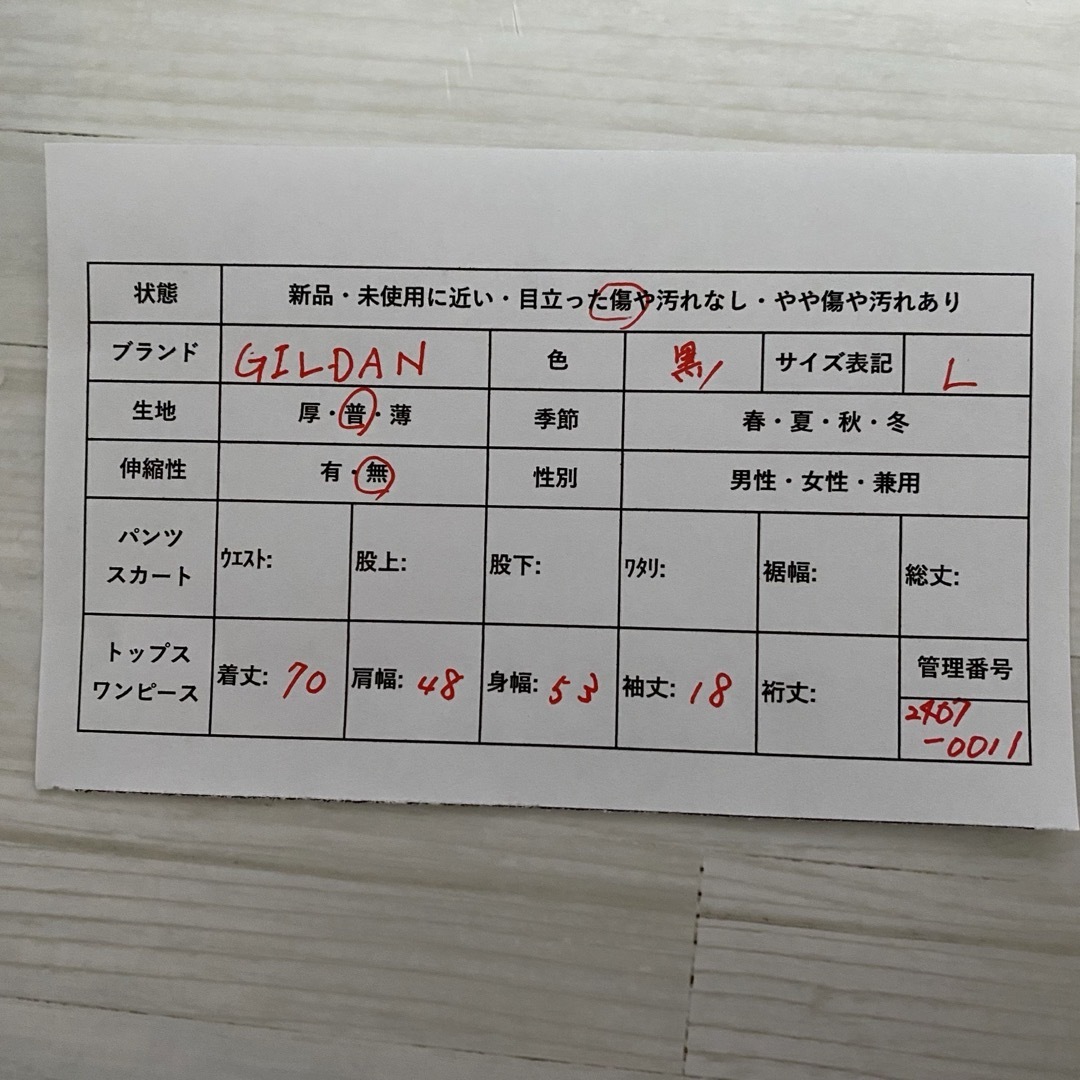 状態 新品・未使用に近い・目立った傷や汚れなし・やや傷や汚れあり
ブランド GILDAN 色 黒 サイズ表記 L
生地 厚・普・薄 季節 春・夏・秋・冬
伸縮性 有・無 性別 男性・女性・兼用
パンツ
スカート
ｳｴｽﾄ: 股上: 股下: ﾜﾀﾘ: 裾幅: 総丈:
トップス
ワンピース
着丈: 70 肩幅: 48 身幅: 53 袖丈: 18 裄丈:
管理番号
2407
-0011